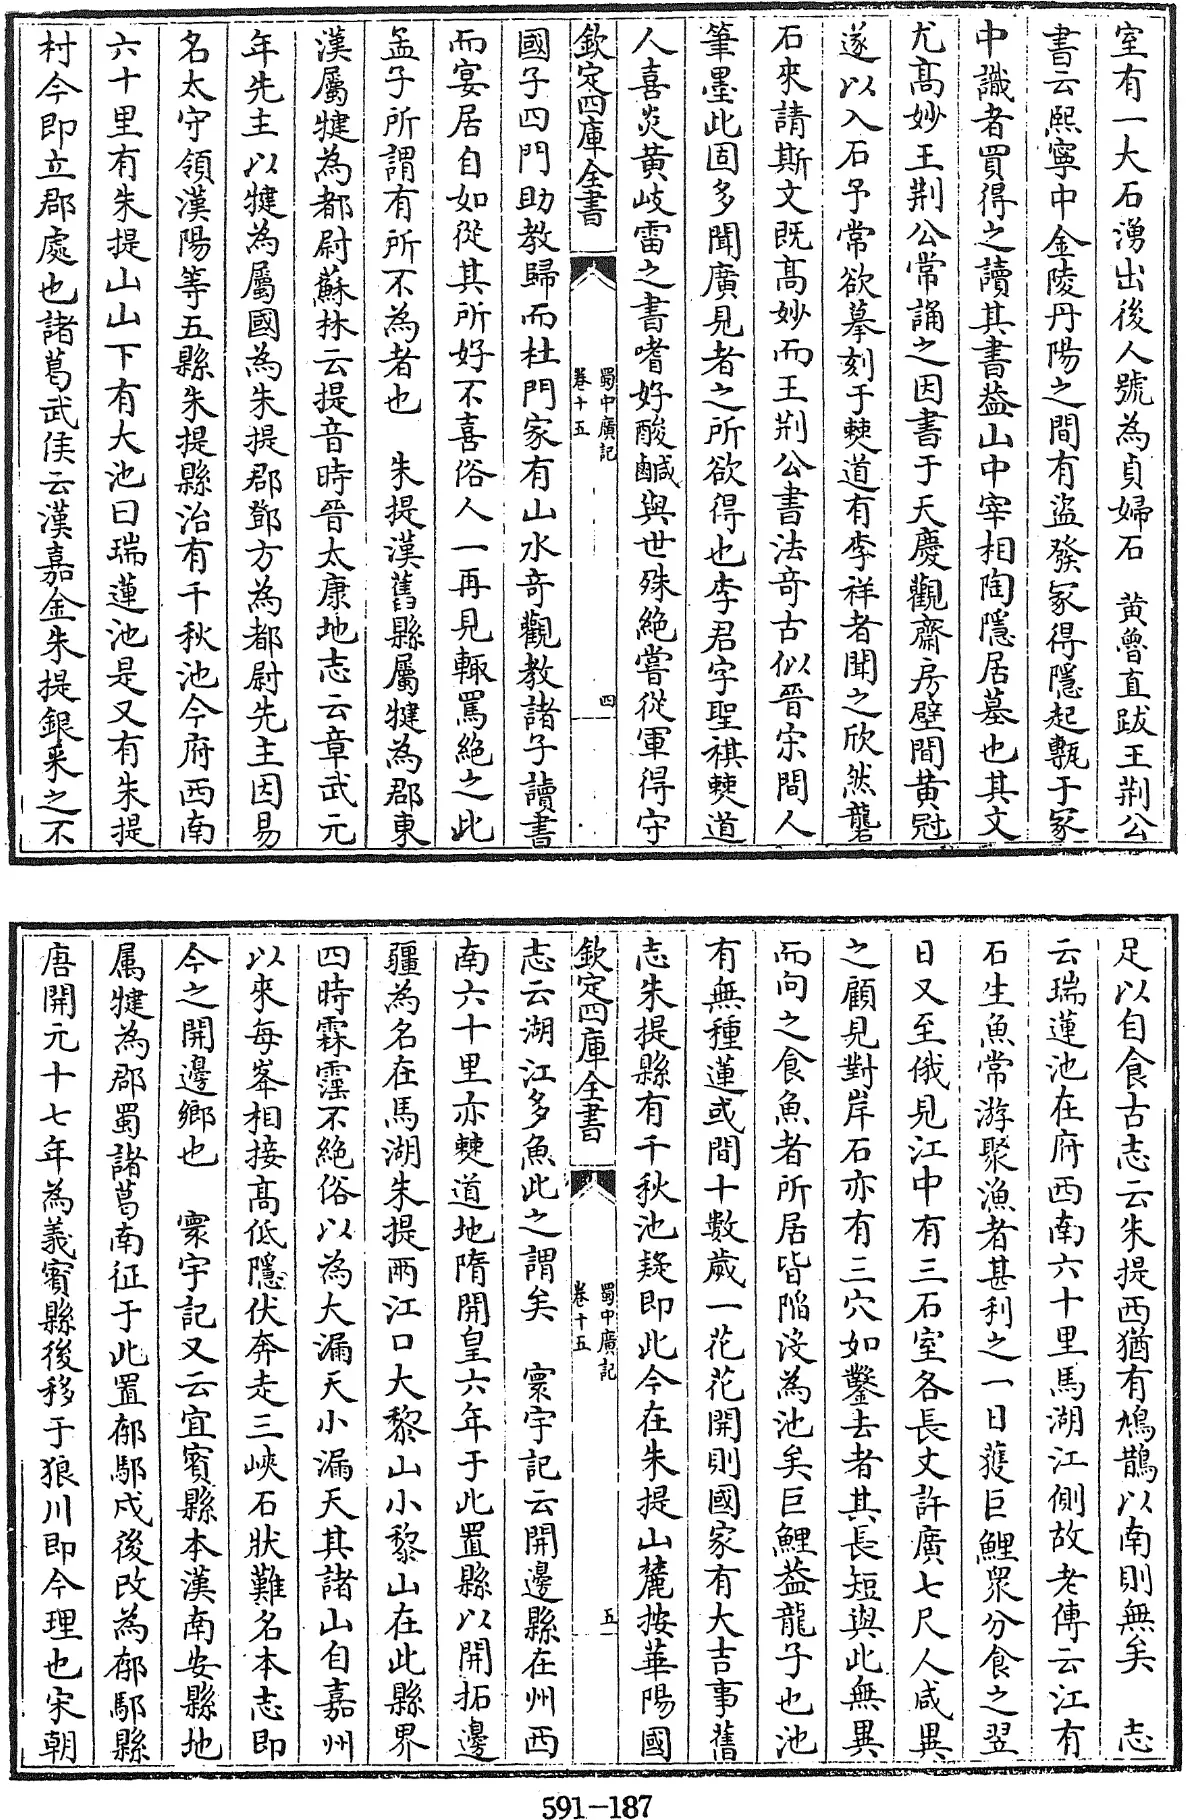 室有一大石湧出後人號為貞婦石　黃魯直跋王荆公
書云熙寧中金陵丹陽之間有盜發冢得隱起甎于冢
中識者買得之讀其書葢山中宰相陶隱居墓也其文
尤高妙王荆公常誦之因書于天慶觀齋房壁間黄冠
遂以入石予常欲摹刻于僰道有李祥者聞之欣然礱
石來請斯文既高妙而王荆公書法奇古似晉宋間人
筆墨此固多聞廣見者之所欲得也李君字聖祺僰道
人喜炎黄岐雷之書嗜好酸鹹與世殊絶嘗從軍得守
欽定四庫全書
蜀中廣記
卷十五
四
國子四門助教歸而杜門家有山水奇觀教諸子讀書
而宴居自如從其所好不喜俗人一再見輙罵絶之此
孟子所謂有所不為者也　朱提漢舊縣屬犍為郡東
漢屬犍為都尉蘇林云提音時晉太康地志云章武元
年先主以犍為屬國為朱提郡鄧方為都尉先主因易
名太守領漢陽等五縣朱提縣治有千秋池今府西南
六十里有朱提山山下有大池曰瑞蓮池是又有朱提
村今即立郡處也諸葛武侯云漢嘉金朱提銀采之不
足以自食古志云朱提西猶有鳩鵲以南則無矣　志
云瑞蓮池在府西南六十里馬湖江側故老傳云江有
石生魚常游聚漁者甚利之一日獲巨鯉衆分食之翌
日又至俄見江中有三石室各長丈許廣七尺人咸異
之顧見對岸石亦有三穴如鑿去者其長短與此無異
而向之食魚者所居皆陷沒為池矣巨鯉葢龍子也池
有無種蓮或間十數歲一花花開則國家有大吉事舊
志朱提縣有千秋池疑即此今在朱提山麓按華陽國
欽定四庫全書
蜀中廣記
卷十五
五
志云湖江多魚此之謂矣　寰宇記云開邊縣在州西
南六十里亦僰道地隋開皇六年于此置縣以開拓邊
疆為名在馬湖朱提兩江口大黎山小黎山在此縣界
四時霖霪不絶俗以為大漏天小漏天其諸山自嘉州
以來每峯相接高低隱伏奔走三峽石狀難名本志即
今之開邊鄉也　寰宇記又云宜賓縣本漢南安縣地
属犍為郡蜀諸葛南征于此置郁鄢戍後改為郁鄢縣
唐開元十七年為義賓縣後移于狼川即今理也宋朝
591-187